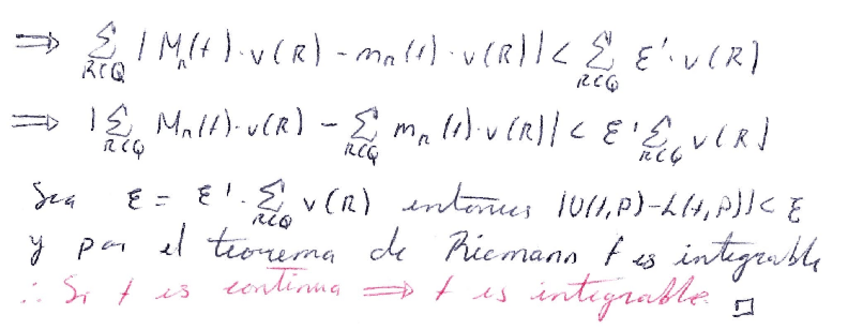 ⟹ Σ_{R⊂Q} |M_R(f)·v(R) - m_R(f)·v(R)| < Σ_{R⊂Q} ε'·v(R)
⟹ |Σ_{R⊂Q} M_R(f)·v(R) - Σ_{R⊂Q} m_R(f)·v(R)| < ε' Σ_{R⊂Q} v(R)
Sea ε = ε'·Σ_{R⊂Q} v(R) entonces |U(f,P)-L(f,P)| < ε
y por el teorema de Riemann f es integrable
∴ Si f es continua ⟹ f es integrable. □